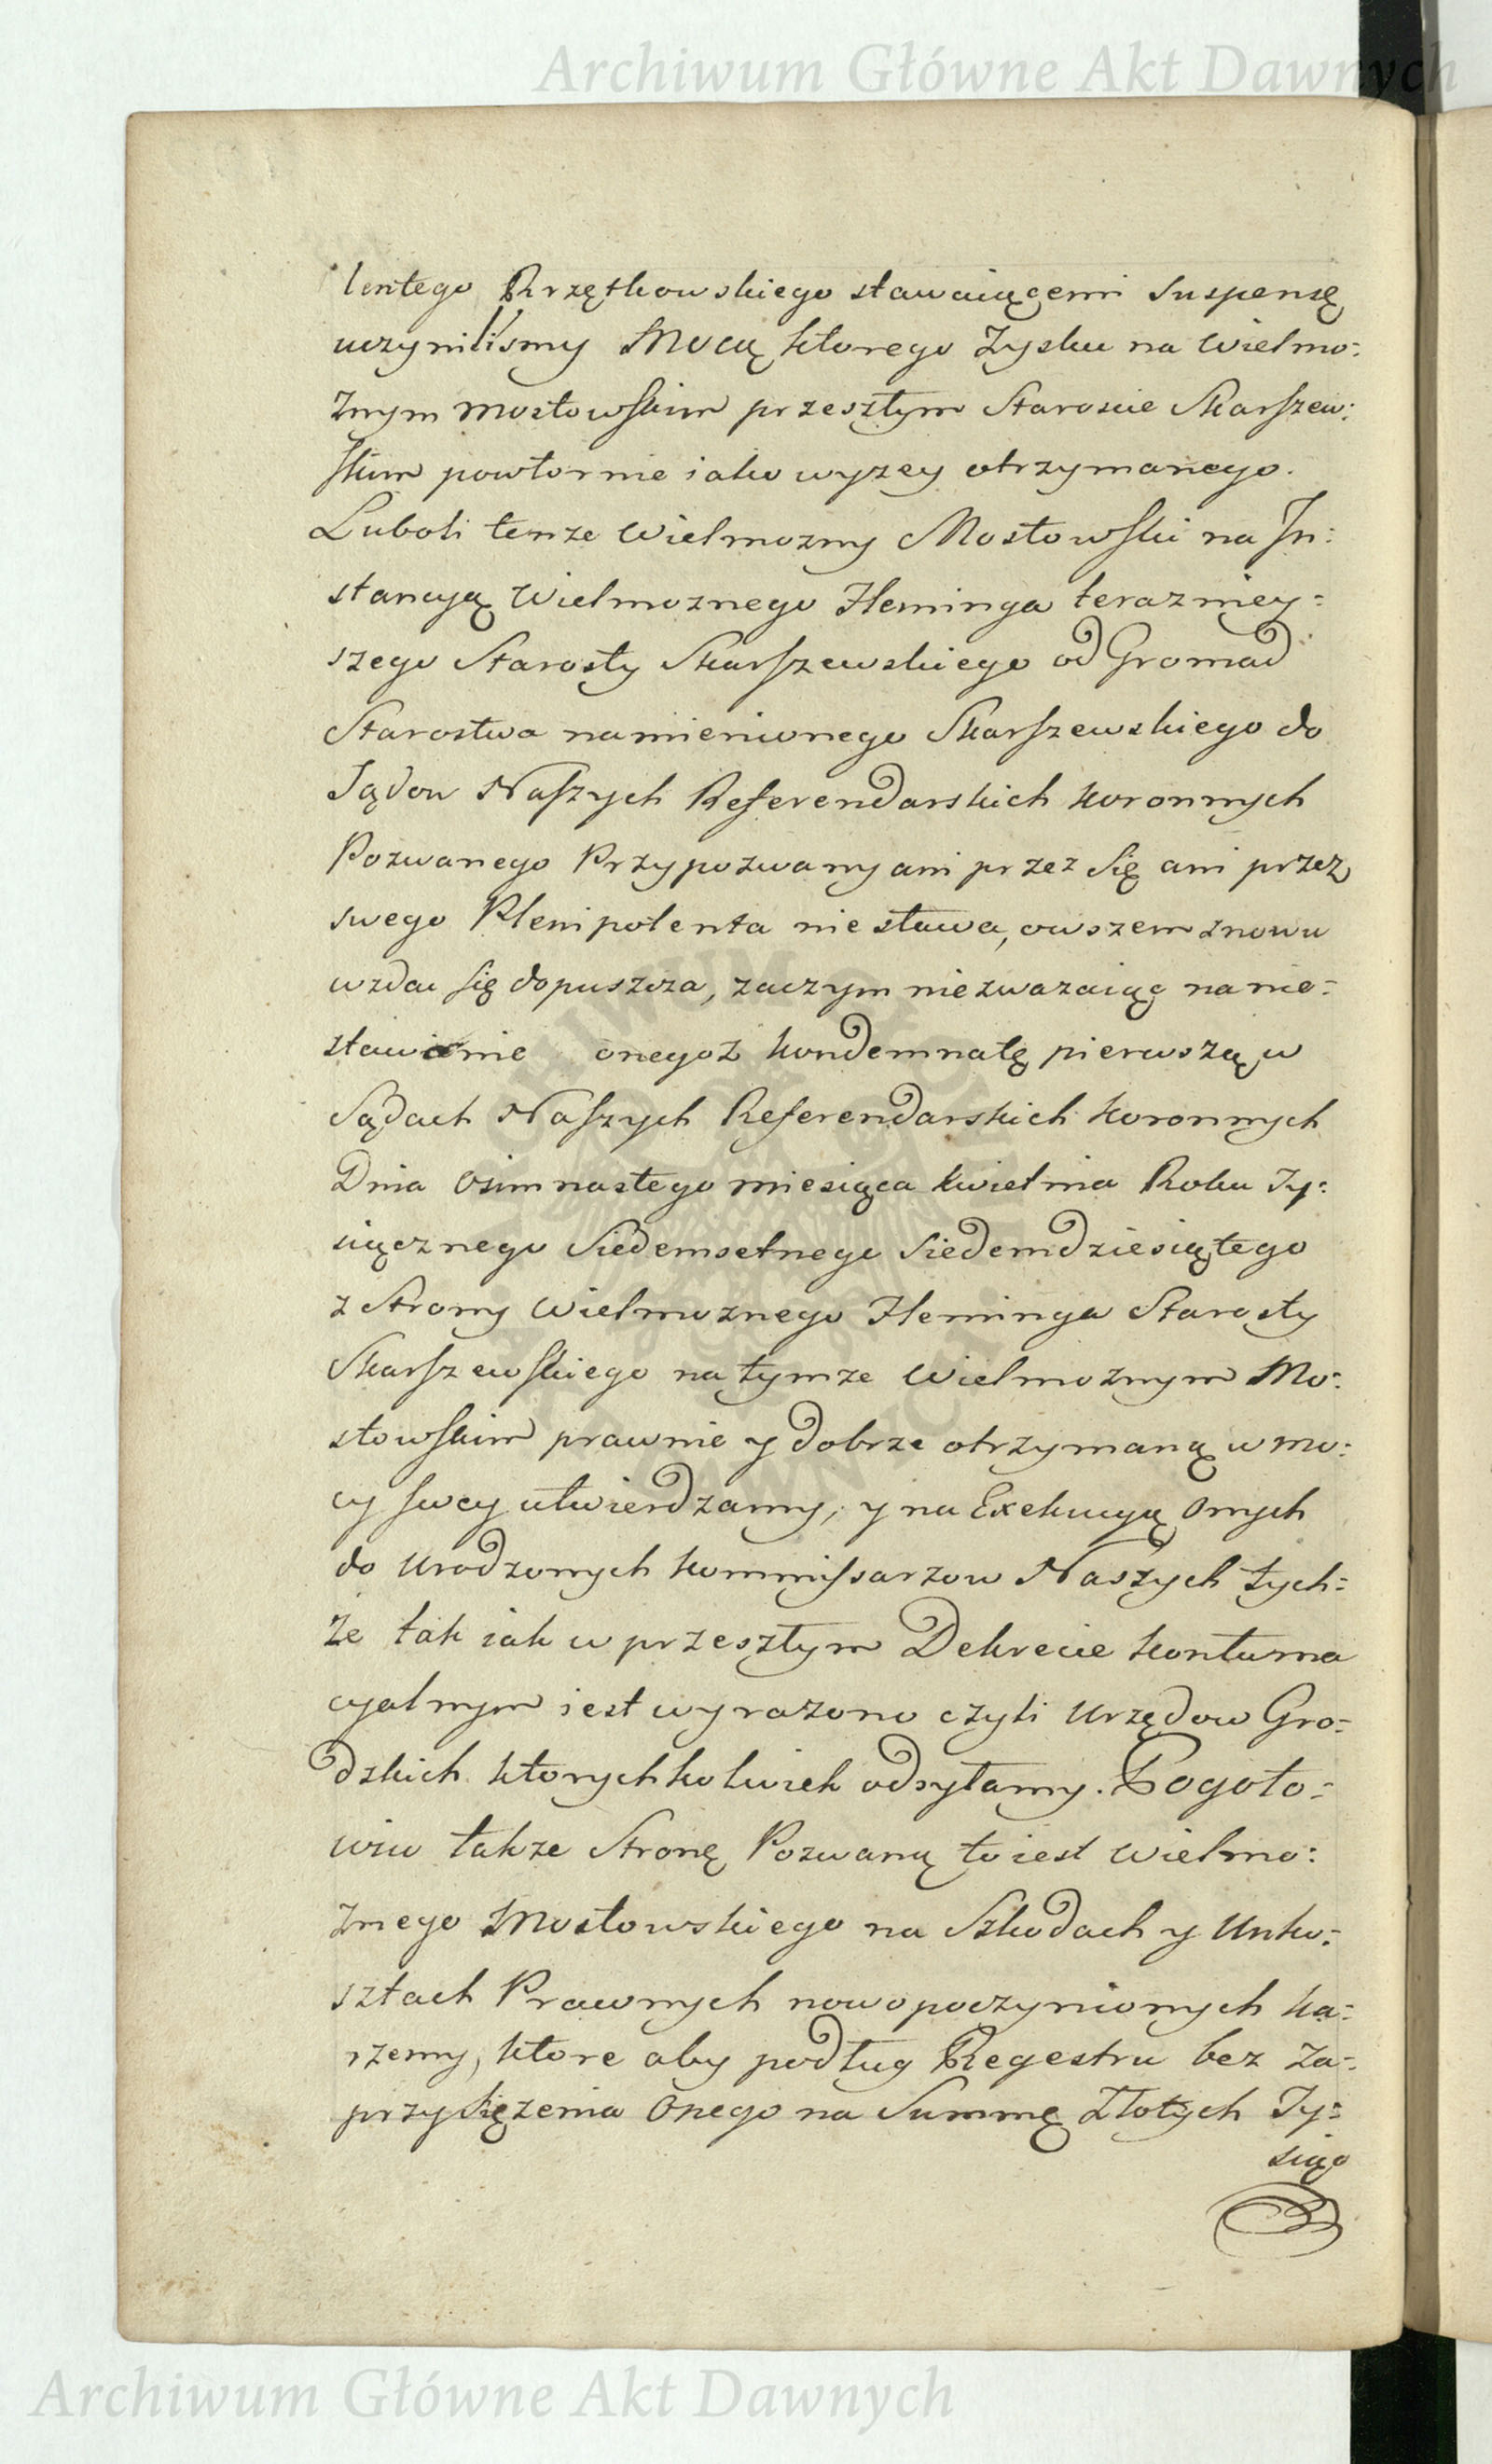 Archiwum Główne Akt Dawnych
lentego Rrzętkowskiego stawaiącemi Suspensę
uczynilismy Mocą ktorego Zysku na Wielmo:
znym Mostowskim przeszłym Staroscie Skarszew:
skim powtornie iako wyzey otrzymanego.
Luboli tenze Wielmozny Mostowski na In:
stancyą Wielmoznego Fleminga terazniey:
szego Starosty Skarszewskiego od Gromad
Starostwa namienionego Skarszewskiego do
Sądow Naszych Referendarskich koronnych
Pozwanego Przypozwany ani przez Się ani przez
swego Plenipotenta nie stawa, owszem znowu
wzdac się dopuszcza, zaczym nie zwazaiąc na nie:
stawienie onegoz kondemnatę pierwszą w
Sądach Naszych Referendarskich koronnych
Dnia osimnastego miesiąca kwietnia Roku Ty:
siącznego Siedemsetnego Siedemdziesiątego
z Strony Wielmoznego Fleminga Starosty
Skarszewskiego na tymze Wielmoznym Mo:
stowskim prawnie y dobrze otrzymaną w mo:
cy swey utwierdzamy, y na Exekucyą onych
do Urodzonych kommissarzow Naszych tych:
ze tak iak w przeszłym Dekrecie kontuma
cyalnym iest wyrazono czyli Urzędow Gro:
dzkich ktorychkolwiek odsyłamy. Pogoto:
wiu takze Stronę Pozwaną to iest Wielmo:
znego Mostowskiego na Szkodach y Unko:
sztach Prawnych nowo poczynionych ka:
rzemy, ktore aby podług Regestru bez za:
przysięzenia onego na Summę Złotych Ty:
siąc
Archiwum Główne Akt Dawnych